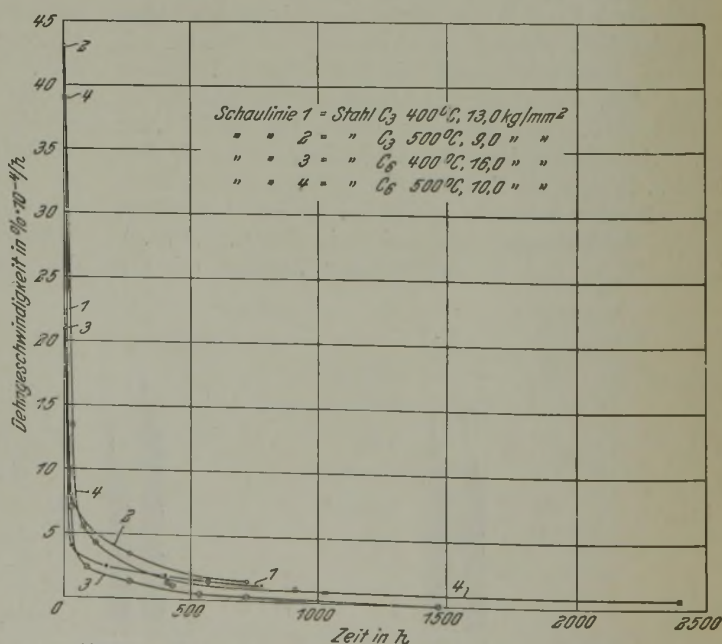 45
40
35
30
25
20
15
10
5
0
Dehngeschwindigkeit in %·10⁻⁴/h
2
4
1
3
Schaulinie 1 = Stahl C3 400°C, 13,0 kg/mm²
" " 2 = " C3 500°C, 9,0 " "
" " 3 = " C6 400°C, 16,0 " "
" " 4 = " C6 500°C, 10,0 " "
4
2
3
1
4
0
500
1000
1500
2000
2500
Zeit in h